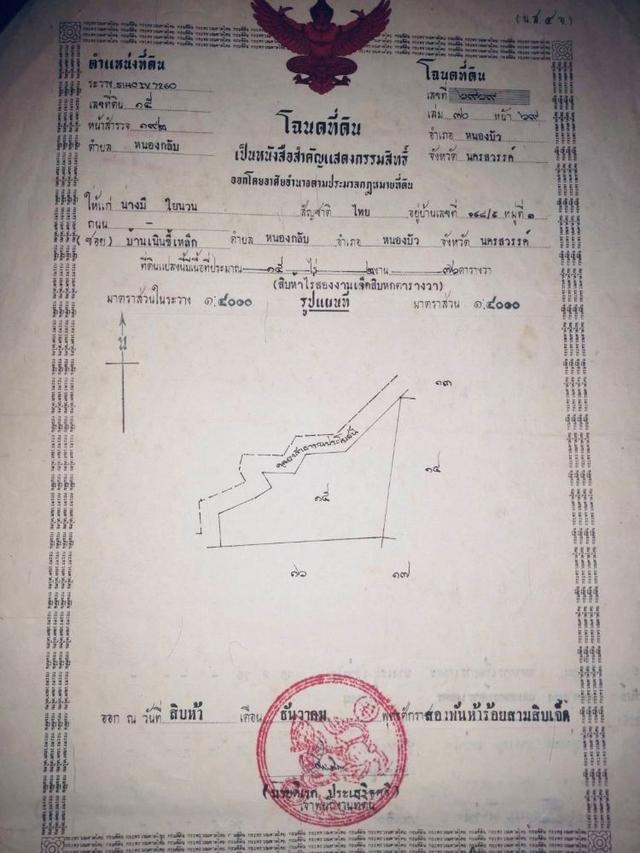 (น.ส.๔ จ)
ตำแหน่งที่ดิน
ระวาง
เลขที่ดิน ๑๕
หน้าสำรวจ ๑๙๘
ตำบล หนองกลับ
โฉนดที่ดิน
เลขที่ ๒๙๒๙
เล่ม ๗๐ หน้า ๒๙
อำเภอ หนองบัว
จังหวัด นครสวรรค์
โฉนดที่ดิน
เป็นหนังสือสำคัญแสดงกรรมสิทธิ์
ออกโดยอาศัยอำนาจตามประมวลกฎหมายที่ดิน
ให้แก่ นางมี ใยนวน สัญชาติ ไทย อยู่บ้านเลขที่ ๑๙๘/๕ หมู่ที่ ๑
ถนน -
(ซอย) บ้านเนินขี้เหล็ก ตำบล หนองกลับ อำเภอ หนองบัว จังหวัด นครสวรรค์
ที่ดินแปลงนี้มีเนื้อที่ประมาณ ๑๕ ไร่ ๒ งาน ๗๖ ตารางวา
(สิบห้าไร่สองงานเจ็ดสิบหกตารางวา)
มาตราส่วนในระวาง ๑:๔๐๐๐ รูปแผนที่ มาตราส่วน ๑:๔๐๐๐
น
๑๓
คลองสาธารณประโยชน์
๑๔
๑๕
๗๖
๑๗
ออก ณ วันที่ สิบห้า เดือน ธันวาคม พุทธศักราช สองพันห้าร้อยสามสิบเจ็ด
ประเสริฐศรี)
เจ้าพนักงานที่ดิน